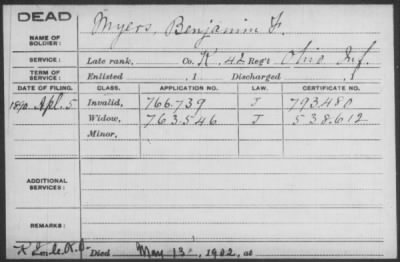 DEAD
NAME OF SOLDIER: Myers, Benjamin F.
SERVICE: Late rank, Co. K. 42 Reg't Ohio Inf.
TERM OF SERVICE: Enlisted , 1 Discharged , 1
DATE OF FILING. CLASS. APPLICATION NO. LAW. CERTIFICATE NO.
1890 Apl. 5 Invalid, 766.739 J 793480
Widow, 763.546 J 538.612
Minor,
ADDITIONAL SERVICES:
REMARKS:
Died May 13, 1902, at